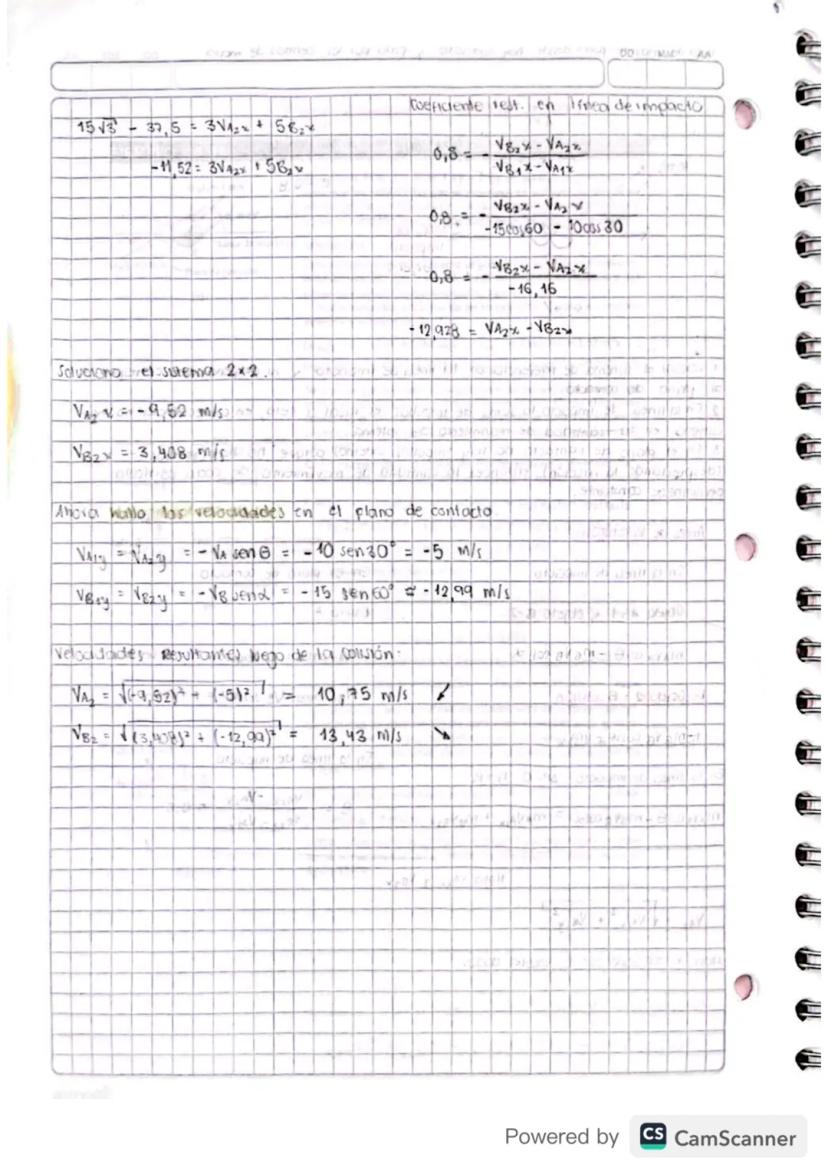 15√3 - 37,5 = 3VA₂x + 5B₂x
-11,52 = 3VA₂x + 5B₂x
Coeficiente rest. en línea de impacto
0,8 = - (VB₂x - VA₂x) / (VB₁x - VA₁x)
0,8 = - (VB₂x - VA₂x) / (-15cos60 - 10cos30)
0,8 = - (VB₂x - VA₂x) / (-16,16)
-12,928 = VA₂x - VB₂x
Soluciono el sistema 2x2.
VA₂x = -9,52 m/s
VB₂x = 3,408 m/s
Ahora hallo las velocidades en el plano de contacto
VA₁y = VA₂y = -VA senθ = -10 sen30° = -5 m/s
VB₁y = VB₂y = -VB senα = -15 sen60° ≅ -12,99 m/s
Velocidades Resultantes luego de la colisión:
VA₂ = √((-9,52)² + (-5)²) = 10,75 m/s ↙
VB₂ = √((3,408)² + (-12,99)²) = 13,43 m/s ↘
Powered by CS CamScanner